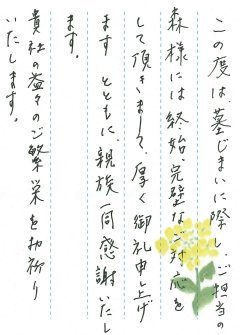 この度は、墓じまいに際し、ご担当の
森様には終始、完璧なご対応を
して頂きまして、厚く御礼申し上げ
ます とともに、親族一同感謝いたし
ます。
貴社の益々のご繁栄をお祈り
いたします。